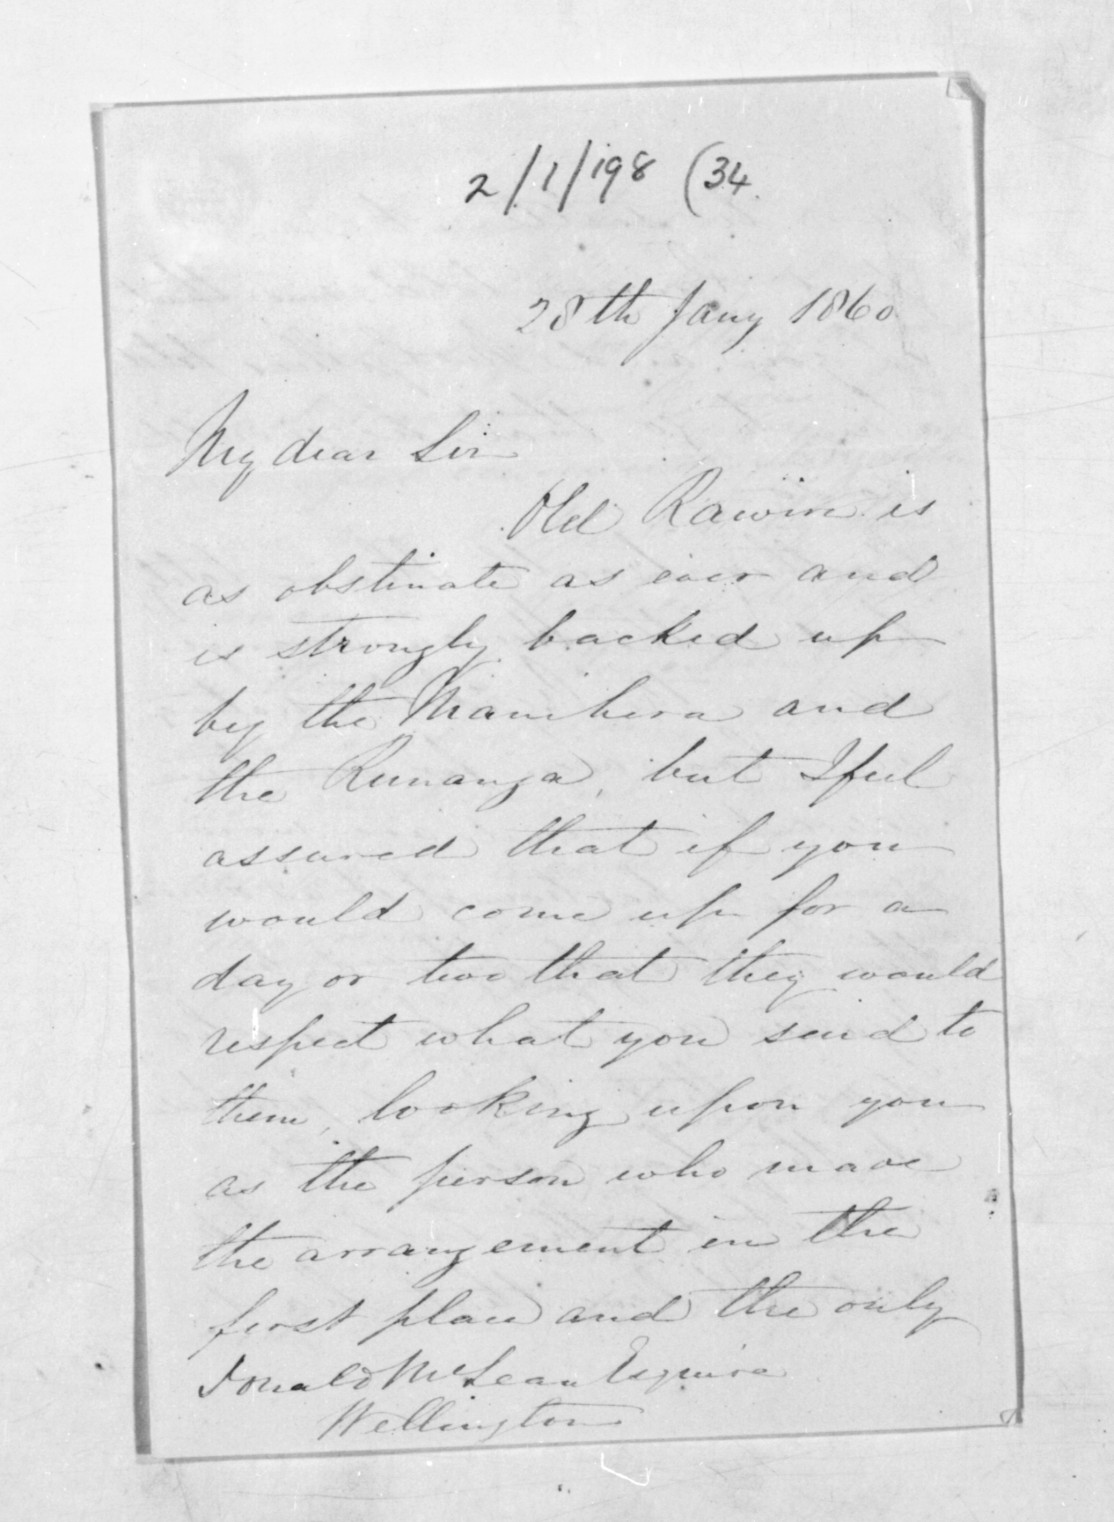 2/1/198 (34.
28th Jany 1860
My dear Sir
Old Rawiri is
as obstinate as ever and
is strongly backed up
by the Manihera and
the Runanga, but I feel
assured that if you
would come up for a
day or two that they would
respect what you said to
them, looking upon you
as the person who made
the arrangement in the
first place and the only
Donald McLean Esquire
Wellington